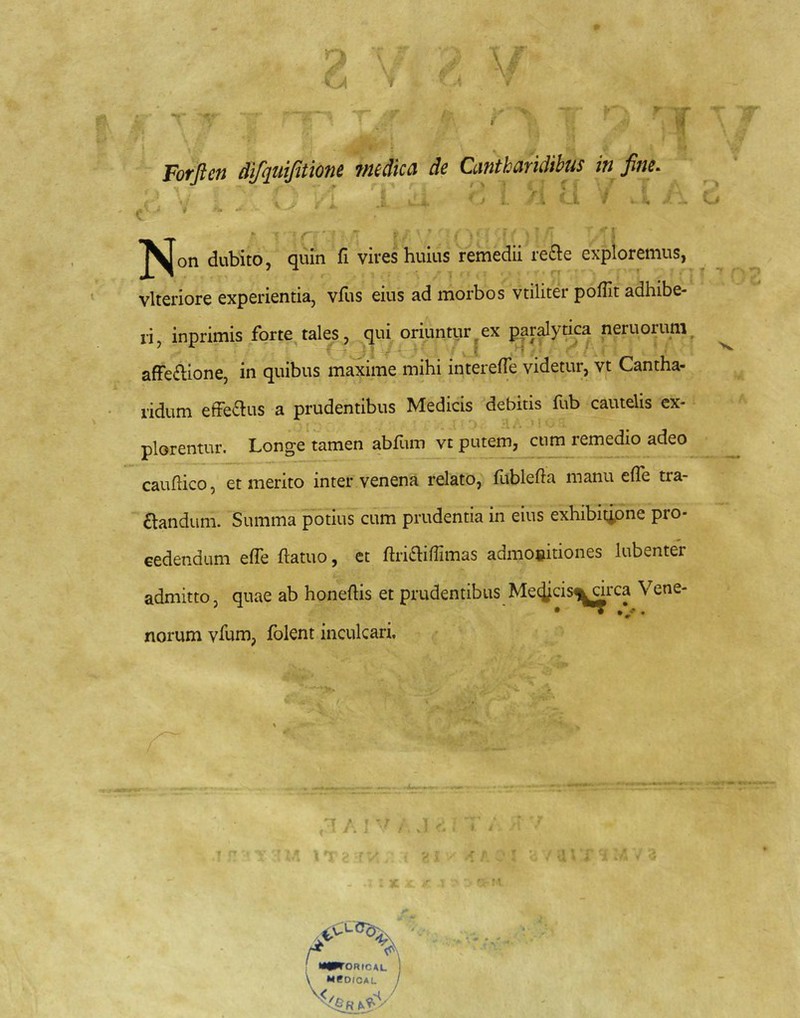 Forſten diſquiſitione medica de Cantharidibus in fine.
Non dubito, quin ſi vires huius remedii recte exploremus,
vlteriore experientia, vſus eius ad morbos vtiliter poſſit adhibe-
ri, inprimis forte tales, qui oriuntur ex paralytica neruorum
affectione, in quibus maxime mihi intereſſe videtur, vt Cantha-
ridum effectus a prudentibus Medicis debitis ſub cautelis ex-
plorentur. Longe tamen abſum vt putem, cum remedio adeo
cauſtico, et merito inter venena relato, ſubleſta manu eſſe tra-
ctandum. Summa potius cum prudentia in eius exhibitione pro-
cedendum eſſe ſtatuo, et ſtrictiſſimas admonitiones lubenter
admitto, quae ab honeſtis et prudentibus Medicis, circa Vene-
norum vſum, ſolent inculcari.
WELLCOME
HISTORICAL
MEDICAL
LIBRARY